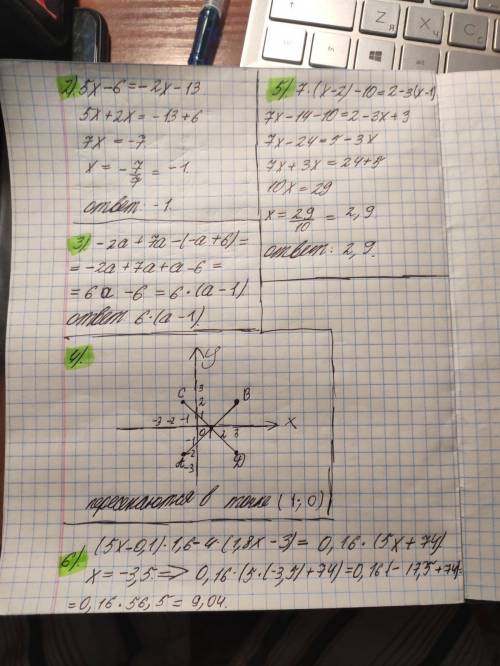 2) 5x-6=-2x-13
5x+2x=-13+6
7x=-7
x=-7/7=-1
ответ -1.
3) -2a+7a-(-a+6)=
=-2a+7a+a-6=
=6a-6=6·(a-1)
ответ 6·(a-1).
4)
y
C
3
2
1
B
-3 -2 -1
0
2
3
x
-1
-2
-3
A
D
пересекаются в точке (1;0)
5) 7·(x-2)-10=2-3(x-1)
7x-14-10=2-3x+3
7x-24=5-3x
7x+3x=24+5
10x=29
x=29/10=2,9
ответ: 2,9.
6) (5x-0,1)·1,6-4·(1,8x-3)=0,16·(5x+74)
x=-3,5=>0,16·(5·(-3,5)+74)=0,16(-17,5+74)=
=0,16·56,5=9,04.
Z
Я
X
Ч
C
С